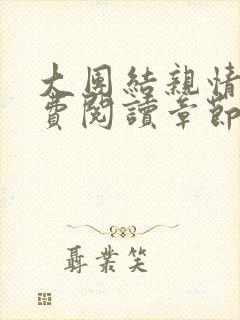 大團結親情
費閱讀章節
聶業笑